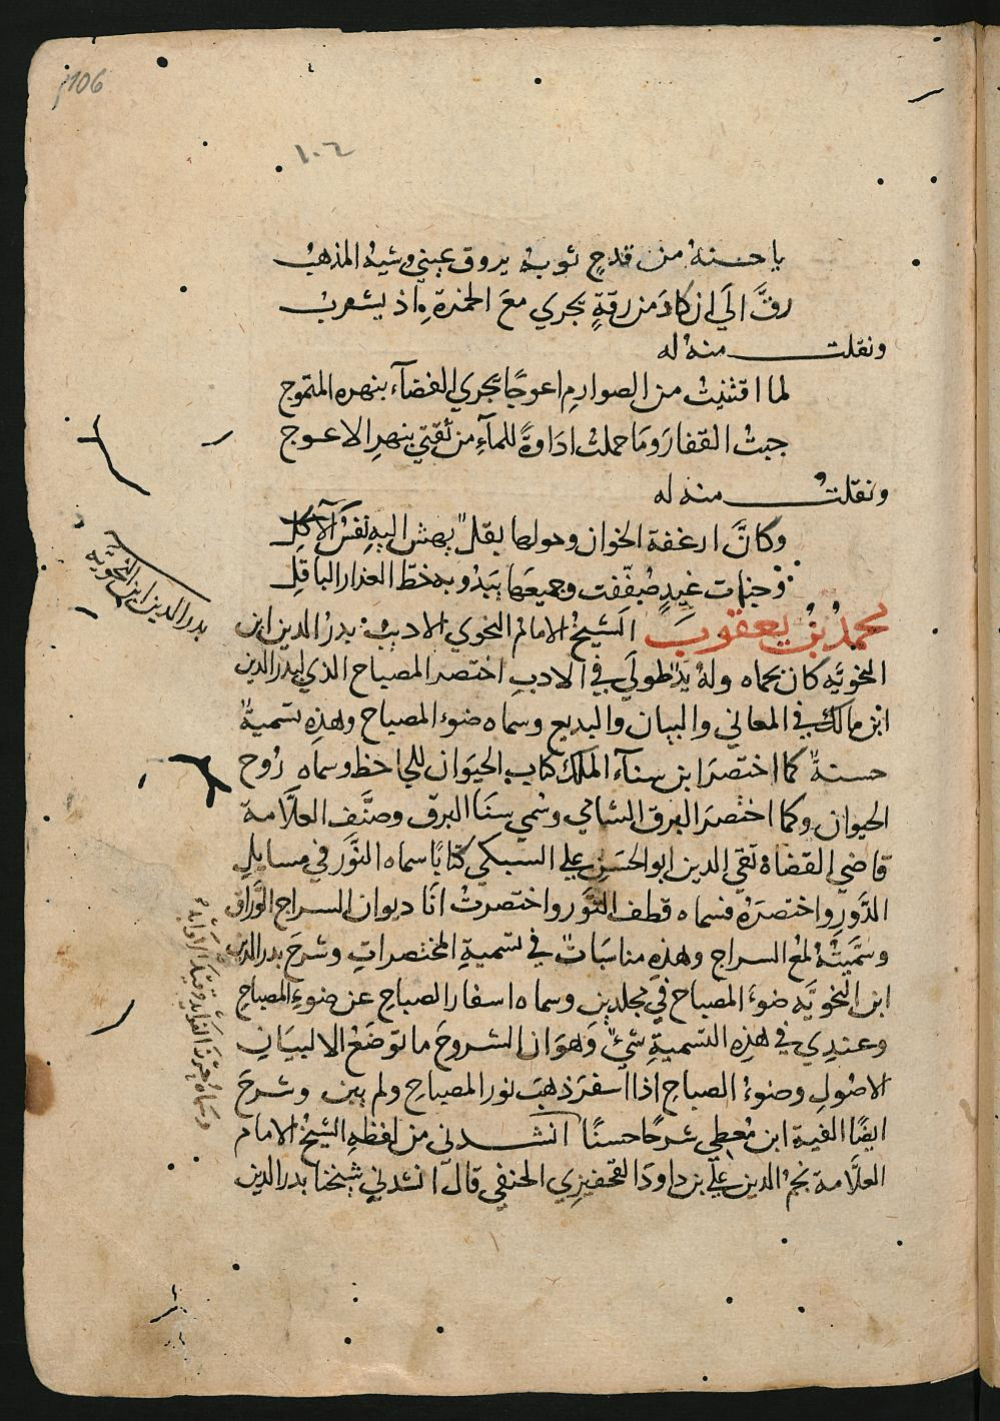 106
١٠٦
يا حسنهُ من قدحٍ ثوبهُ يروق عيني وشيهُ المذهبُ
رقَّ الَي ان كادَ من رقةٍ يجري معَ الخمرةِ اذ يشربُ
ونقلت منهُ له
لما اقتنيتُ من الصوارمِ اعوجًا يجري الفضآء بنهره المتموج
جبتُ القفارَ ومَا حملتُ ادَاوةً للمآءِ من ثقتي بنهرِ الاعوج
ونقلتُ منه له
وكانَّ ارغفة الخوان وحولها بقلٌ يهش اليهِ نفسُ الآكلِ
وجنات غيدٍ صُففت وجميعها يبدُو به خطّ العذار الباقلِ
محمدُ بنُ يعقوبَ الشيخُ الامامُ النحوي الاديبُ بدرُ الدين ابن
النحويَه كان بحماه ولهُ يَدٌ طولَي في الادبِ اختصر المصباح الذي لبدر الدين
ابن مالك في المعاني والبيان والبديع وسماه ضوء المصباح وهذِه تسميةٌ
حسنةٌ كما اختصرَ ابن سنآء الملك كتاب الحيَوان للجاحظ وسماه رُوح
الحيوان وكما اختصرَ البرق الشامي وسُمي سنَا البرق وصنَّف العلَّامة
قاضي القضاة تقي الدين ابو الحسَن علي السبكي كتابًا سماه النَّور في مسايل
الدَّورِ واختصرَهُ فسماه قطف النَّور واختصرتُ انَا ديوان السراج الوَّراق
وسَمَّيتُهُ لمعَ السراج وهذه مناسَبَاتٌ في تسميةِ المختصراتِ وشرحَ بدر الدين
ابن النحويَّه ضوءَ المصباح في مجلدين وسماه اسفار الصباحِ عن ضوءِ المصباحِ
وعندِي في هذِهِ التسميةِ شيءٌ وَهوَ ان الشروحَ ما توضَعُ الا لبيَانِ
الاصُولِ وضوءُ الصباحِ اذا اسفرَ ذهبَ نور المصباحِ ولم يبن وشرحَ
ايضًا الفية ابن مُعطي شرحًا حسنًا انشدني من لفظهِ الشيخُ الامام
العلَّامة نجمُ الدين عليّ بن داودَ القحفيزِي الحنفي قالَ انشدني شيخنا بدر الدين
بدر الدين ابن النحويَّه